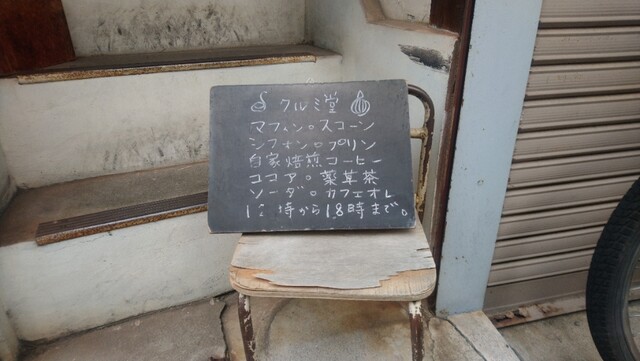 クルミ堂
マフィン。スコーン
シフォン。プリン
自家焙煎コーヒー
ココア。薬草茶
ソーダ。カフェオレ
12時から18時まで。